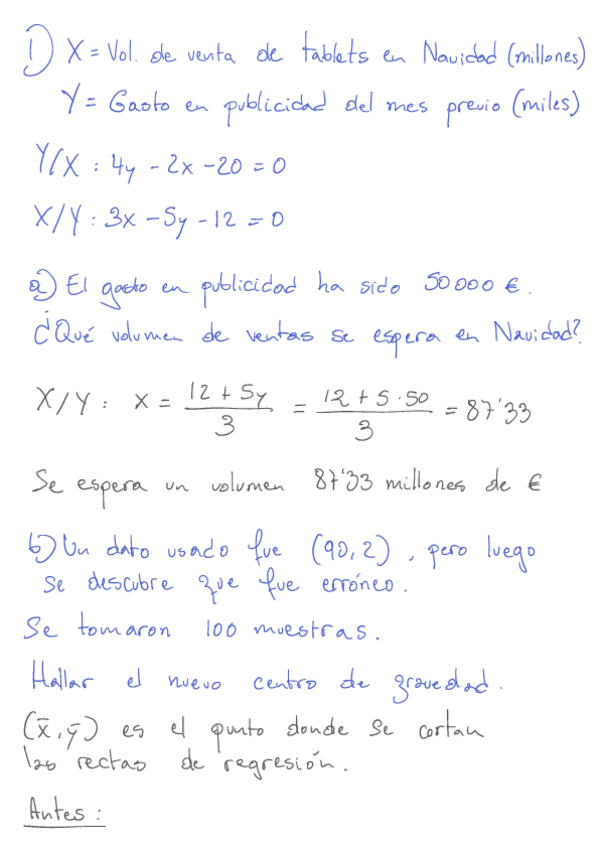 1) X = Vol. de venta de tablets en Navidad (millones)
Y = Gasto en publicidad del mes previo (miles)
Y/X : 4y - 2x - 20 = 0
X/Y : 3x - 5y - 12 = 0
a) El gasto en publicidad ha sido 50000 €.
¿Qué volumen de ventas se espera en Navidad?
X/Y : x = (12 + 5y)/3 = (12 + 5·50)/3 = 87'33
Se espera un volumen 87'33 millones de €
b) Un dato usado fue (90, 2), pero luego
se descubre que fue erróneo.
Se tomaron 100 muestras.
Hallar el nuevo centro de gravedad.
(x̄, ȳ) es el punto donde se cortan
las rectas de regresión.
Antes :